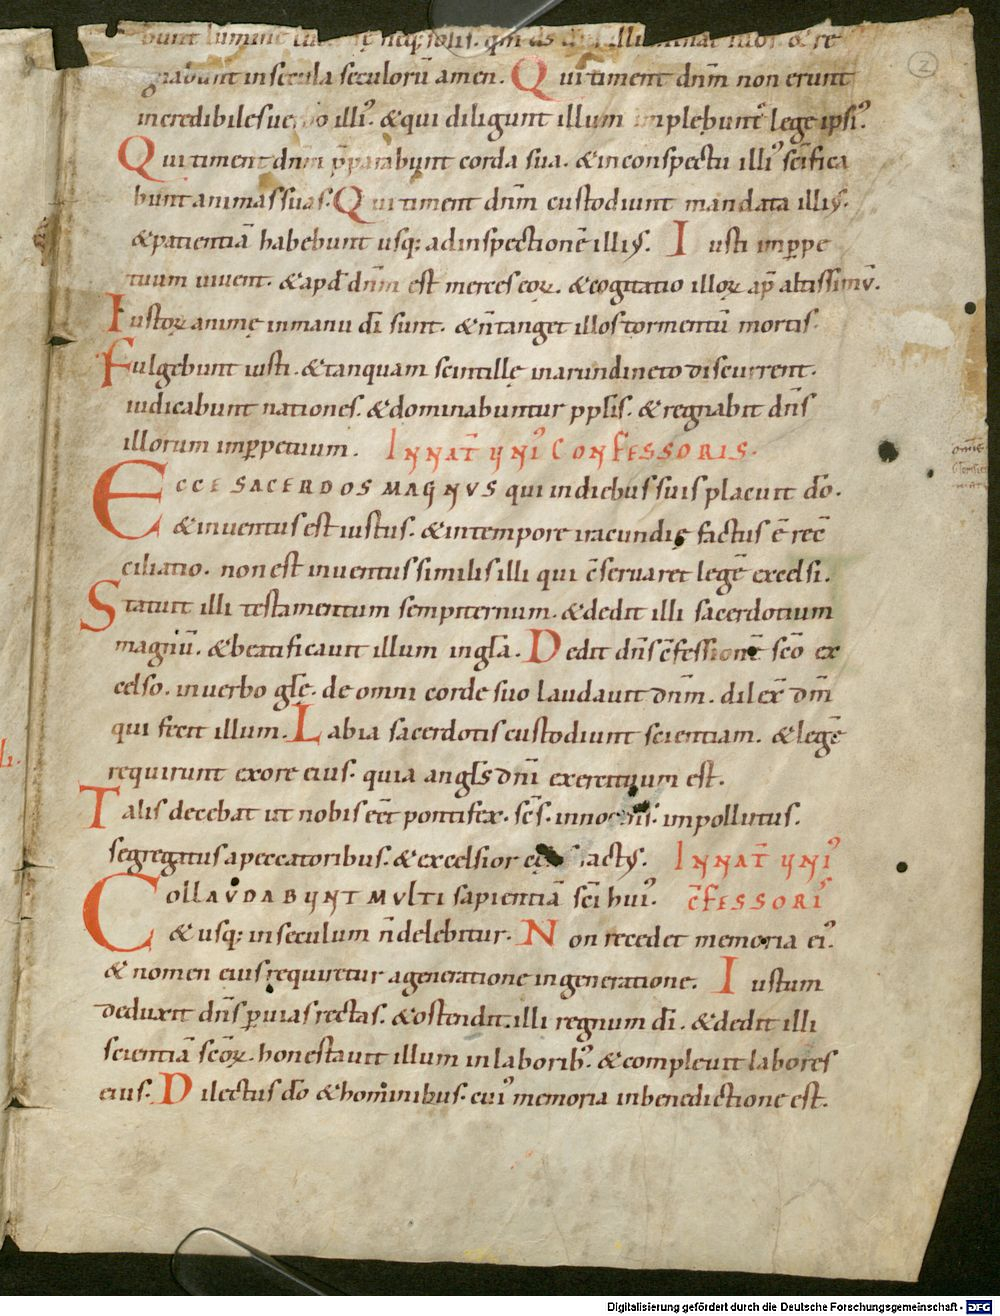 bunt lumine neq; solis. qm̄ ds̄ illuminat illos & re
gnabunt in secula seculorū amen. Qui timent dn̄m non erunt
incredibiles uerbo illiꝰ. & qui diligunt illum implebuntᷣ lege ipsiꝰ.
Qui timent dn̄m p̄parabunt corda sua. & in conspectu illiꝰ sc̄ifica
bunt animas suas. Qui timent dn̄m custodiunt mandata illiꝰ.
& patientiā habebunt usq; ad inspectionē illiꝰ. Iusti imppe
tuum uiuent. & apd̄ dn̄m est merces eoꝝ. & cogitatio illoꝝ ap̄ altissimū.
Iustoꝝ animę in manu dī sunt. & n̄ tanget illos tormentū mortis.
Fulgebunt iusti. & tanquam scintillę in arundineto discurrent.
iudicabunt nationes. & dominabuntur ppl̄is. & regnabit dn̄s
illorum imꝑpetuum. IN NAT̄ UNIꝰ CONFESSORIS.
ECCE SACERDOS MAGNUS qui in diebus suis placuit dō.
& inuentus est iustus. & in tempore iracundię factus ē rec̄
ciliatio. non est inuentus similis illi qui c̄seruaret legē excelsi.
Statuit illi testamentum sempiternum. & dedit illi sacerdotium
magnū. & beatificauit illum in gl̄a. Dedit dn̄s c̄fessionē sc̄o ex
celso. in uerbo gl̄ę. de omni corde suo laudauit dn̄m. dilex̄ dm̄
qui fecit illum. Labia sacerdotis custodiunt scientiam. & legē
requirunt ex ore eius. quia angl̄s dn̄i exercituum est.
Talis decebat ut nobis eēt pontifex. sc̄s. innocens. impollutus.
segregatus a peccatoribus. & excelsior factꝰ. IN NAT̄ UNIꝰ
COLLAUDABUNT MULTI sapientiā sc̄i huiꝰ. C̄FESSORIꝰ
& usq; in seculum n̄ delebitur. Non recedet memoria eiꝰ.
& nomen eius requiretur a generatione in generatione. Iustum
deduxit dn̄s ꝑ uias rectas. & ostendit illi regnum dī. & dedit illi
scientiā sc̄oꝝ. honestauit illum in laboribꝰ. & compleuit labores
eius. Dilectus dō & hominibus. cuiꝰ memoria in benedictione est.
2
Digitalisierung gefördert durch die Deutsche Forschungsgemeinschaft - DFG